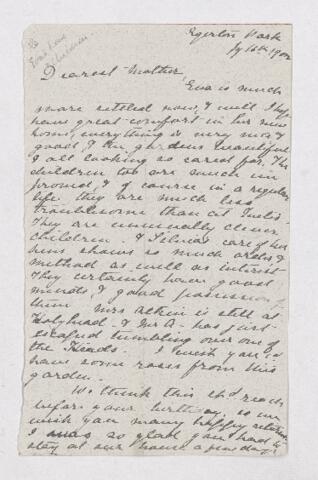 Egerton Park
Jy 16th 1902
Dearest Mother,
Eva is much
more settled now, & will I hope
have great comfort in her new
home, everything is very nice &
good, & the gardens beautiful
& all looking so cared for. The
children too are much in
& of course in a regular
life they are much less
troublesome than at
They are unusually clever
children. & care of her
hens shows so much order &
method as well as interest
They certainly have good
minds, & good possession of
them. Mrs Atkin is still at
Holyhead. & Mr A. has just
escaped tumbling over one of
the Heads. I wish you could
have some roses from this
garden.
We think this shd reach
before your birthday, so we
wish you many happy returns
I was so glad you had to
stay at our house a few days